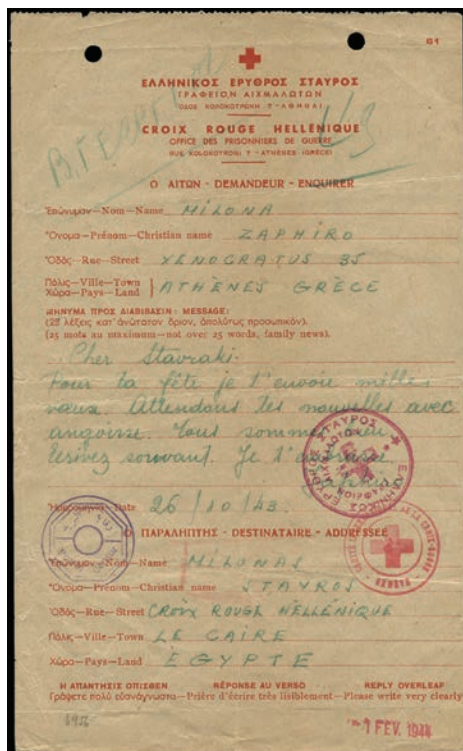 61
ΕΛΛΗΝΙΚΟΣ ΕΡΥΘΡΟΣ ΣΤΑΥΡΟΣ
ΓΡΑΦΕΙΟΝ ΑΙΧΜΑΛΩΤΩΝ
ΟΔΟΣ ΚΟΛΟΚΟΤΡΩΝΗ 7 - ΑΘΗΝΑΙ
CROIX ROUGE HELLÉNIQUE
OFFICE DES PRISONNIERS DE GUERRE
RUE KOLOKOTRONI 7 - ATHÈNES (GRÈCE)
Ο ΑΙΤΩΝ - DEMANDEUR - ENQUIRER
Ἐπώνυμον—Nom—Name MILONA
Ὄνομα—Prénom—Christian name ZAPHIRO
Ὁδός—Rue—Street XENOGRATUS 35
Πόλις—Ville—Town
Χώρα—Pays—Land ATHÈNES GRÈCE
ΜΗΝΥΜΑ ΠΡΟΣ ΔΙΑΒΙΒΑΣΙΝ: MESSAGE:
(25 λέξεις κατ' ἀνώτατον ὅριον, ἀπολύτως προσωπικόν).
(25 mots au maximum—not over 25 words, family news).
Cher Stavraki.
Pour ta fête je t'envoie mille
vœux. Attendons tes nouvelles avec
angoisse. Tous sommes bien.
Ecrivez souvent. Je t'embrasse
Date 26/10/43
Ο ΠΑΡΑΛΗΠΤΗΣ - DESTINATAIRE - ADDRESSEE
Ἐπώνυμον—Nom—Name MILONAS
Ὄνομα—Prénom—Christian name STAVROS
Ὁδός—Rue—Street CROIX ROUGE HELLÉNIQUE
Πόλις—Ville—Town LE CAIRE
Χώρα—Pays—Land EGYPTE
Η ΑΠΑΝΤΗΣΙΣ ΟΠΙΣΘΕΝ RÉPONSE AU VERSO REPLY OVERLEAF
Γράφετε πολὺ εὐανάγνωστα—Prière d'écrire très lisiblement—Please write very clearly
1 FEV. 1944